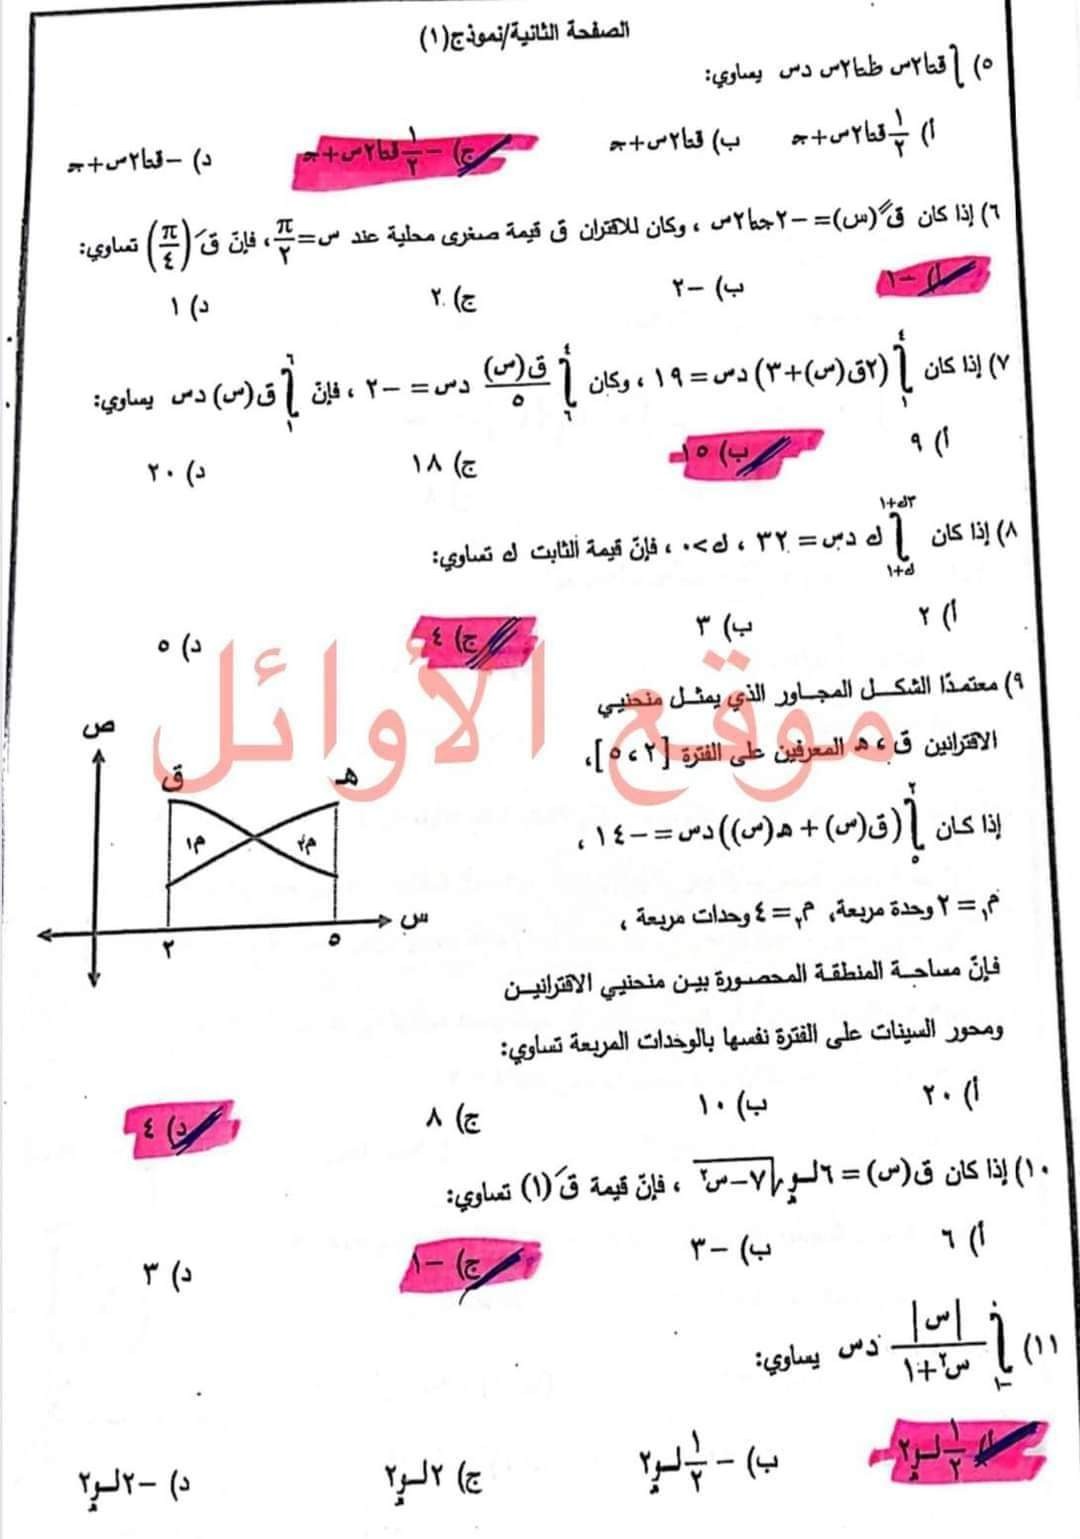 الصفحة الثانية/نموذج(١)
٥) ∫ قتا٢س ظتا٢س دس يساوي:
أ) ١/٢ قتا٢س+جـ ب) قتا٢س+جـ ج) −١/٢ قتا٢س+جـ د) −قتا٢س+جـ
٦) إذا كان قَ َ(س)= −٢جتا٢س ، وكان للاقتران ق قيمة صغرى محلية عند س=π/٢، فإنّ قَ(π/٤) تساوي:
أ) −١ ب) −٢ ج) ٢ د) ١
٧) إذا كان ∫١^٤ (٢ق(س)+٣) دس= ١٩ ، وكان ∫٦^٤ ق(س)/٥ دس= −٢ ، فإنّ ∫١^٦ ق(س) دس يساوي:
أ) ٩ ب) ١٥ ج) ١٨ د) ٢٠
٨) إذا كان ∫ك+١^٣ك+١ ك دس= ٣٢ ، ك>٠ ، فإنّ قيمة الثابت ك تساوي:
أ) ٢ ب) ٣ ج) ٤ د) ٥
موقع الأوائل
٩) معتمدًا الشكل المجاور الذي يمثل منحنيي
الاقترانين ق ، هـ المعرفين على الفترة [٢ ، ٥]،
إذا كان ∫٥^٢ (ق(س) + هـ(س)) دس= −١٤ ،
م١= ٢ وحدة مربعة، م٢= ٤ وحدات مربعة ،
فإنّ مساحة المنطقة المحصورة بين منحنيي الاقترانين
ومحور السينات على الفترة نفسها بالوحدات المربعة تساوي:
ص
ق هـ
م١ م٢
س
٢ ٥
أ) ٢٠ ب) ١٠ ج) ٨ د) ٤
١٠) إذا كان ق(س)= ٦لـوهـ√(٧−س٢) ، فإنّ قيمة قَ(١) تساوي:
أ) ٦ ب) −٣ ج) −١ د) ٣
١١) ∫−١^٠ |س|/(س٢+١) دس يساوي:
أ) ١/٢ لـوهـ٢ ب) −١/٢ لـوهـ٢ ج) ٢لـوهـ٢ د) −٢لـوهـ٢